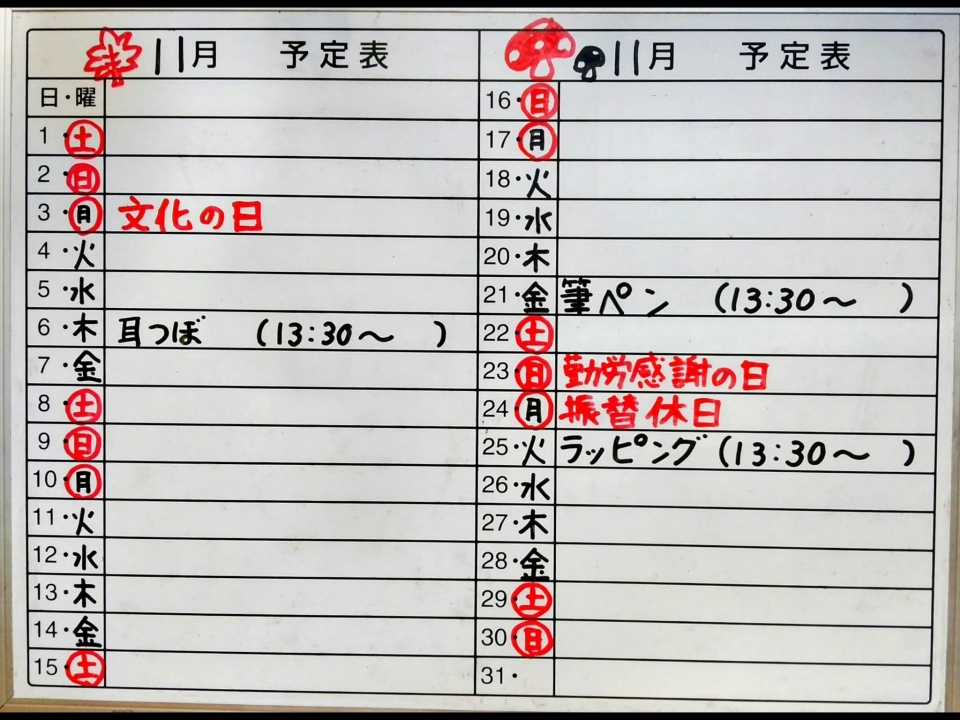 11月 予定表
日・曜
1・土
2・日
3・月 文化の日
4・火
5・水
6・木 耳つぼ (13:30〜 )
7・金
8・土
9・日
10・月
11・火
12・水
13・木
14・金
15・土
11月 予定表
16・日
17・月
18・火
19・水
20・木
21・金 筆ペン (13:30〜 )
22・土
23・日 勤労感謝の日
24・月 振替休日
25・火 ラッピング (13:30〜 )
26・水
27・木
28・金
29・土
30・日
31・